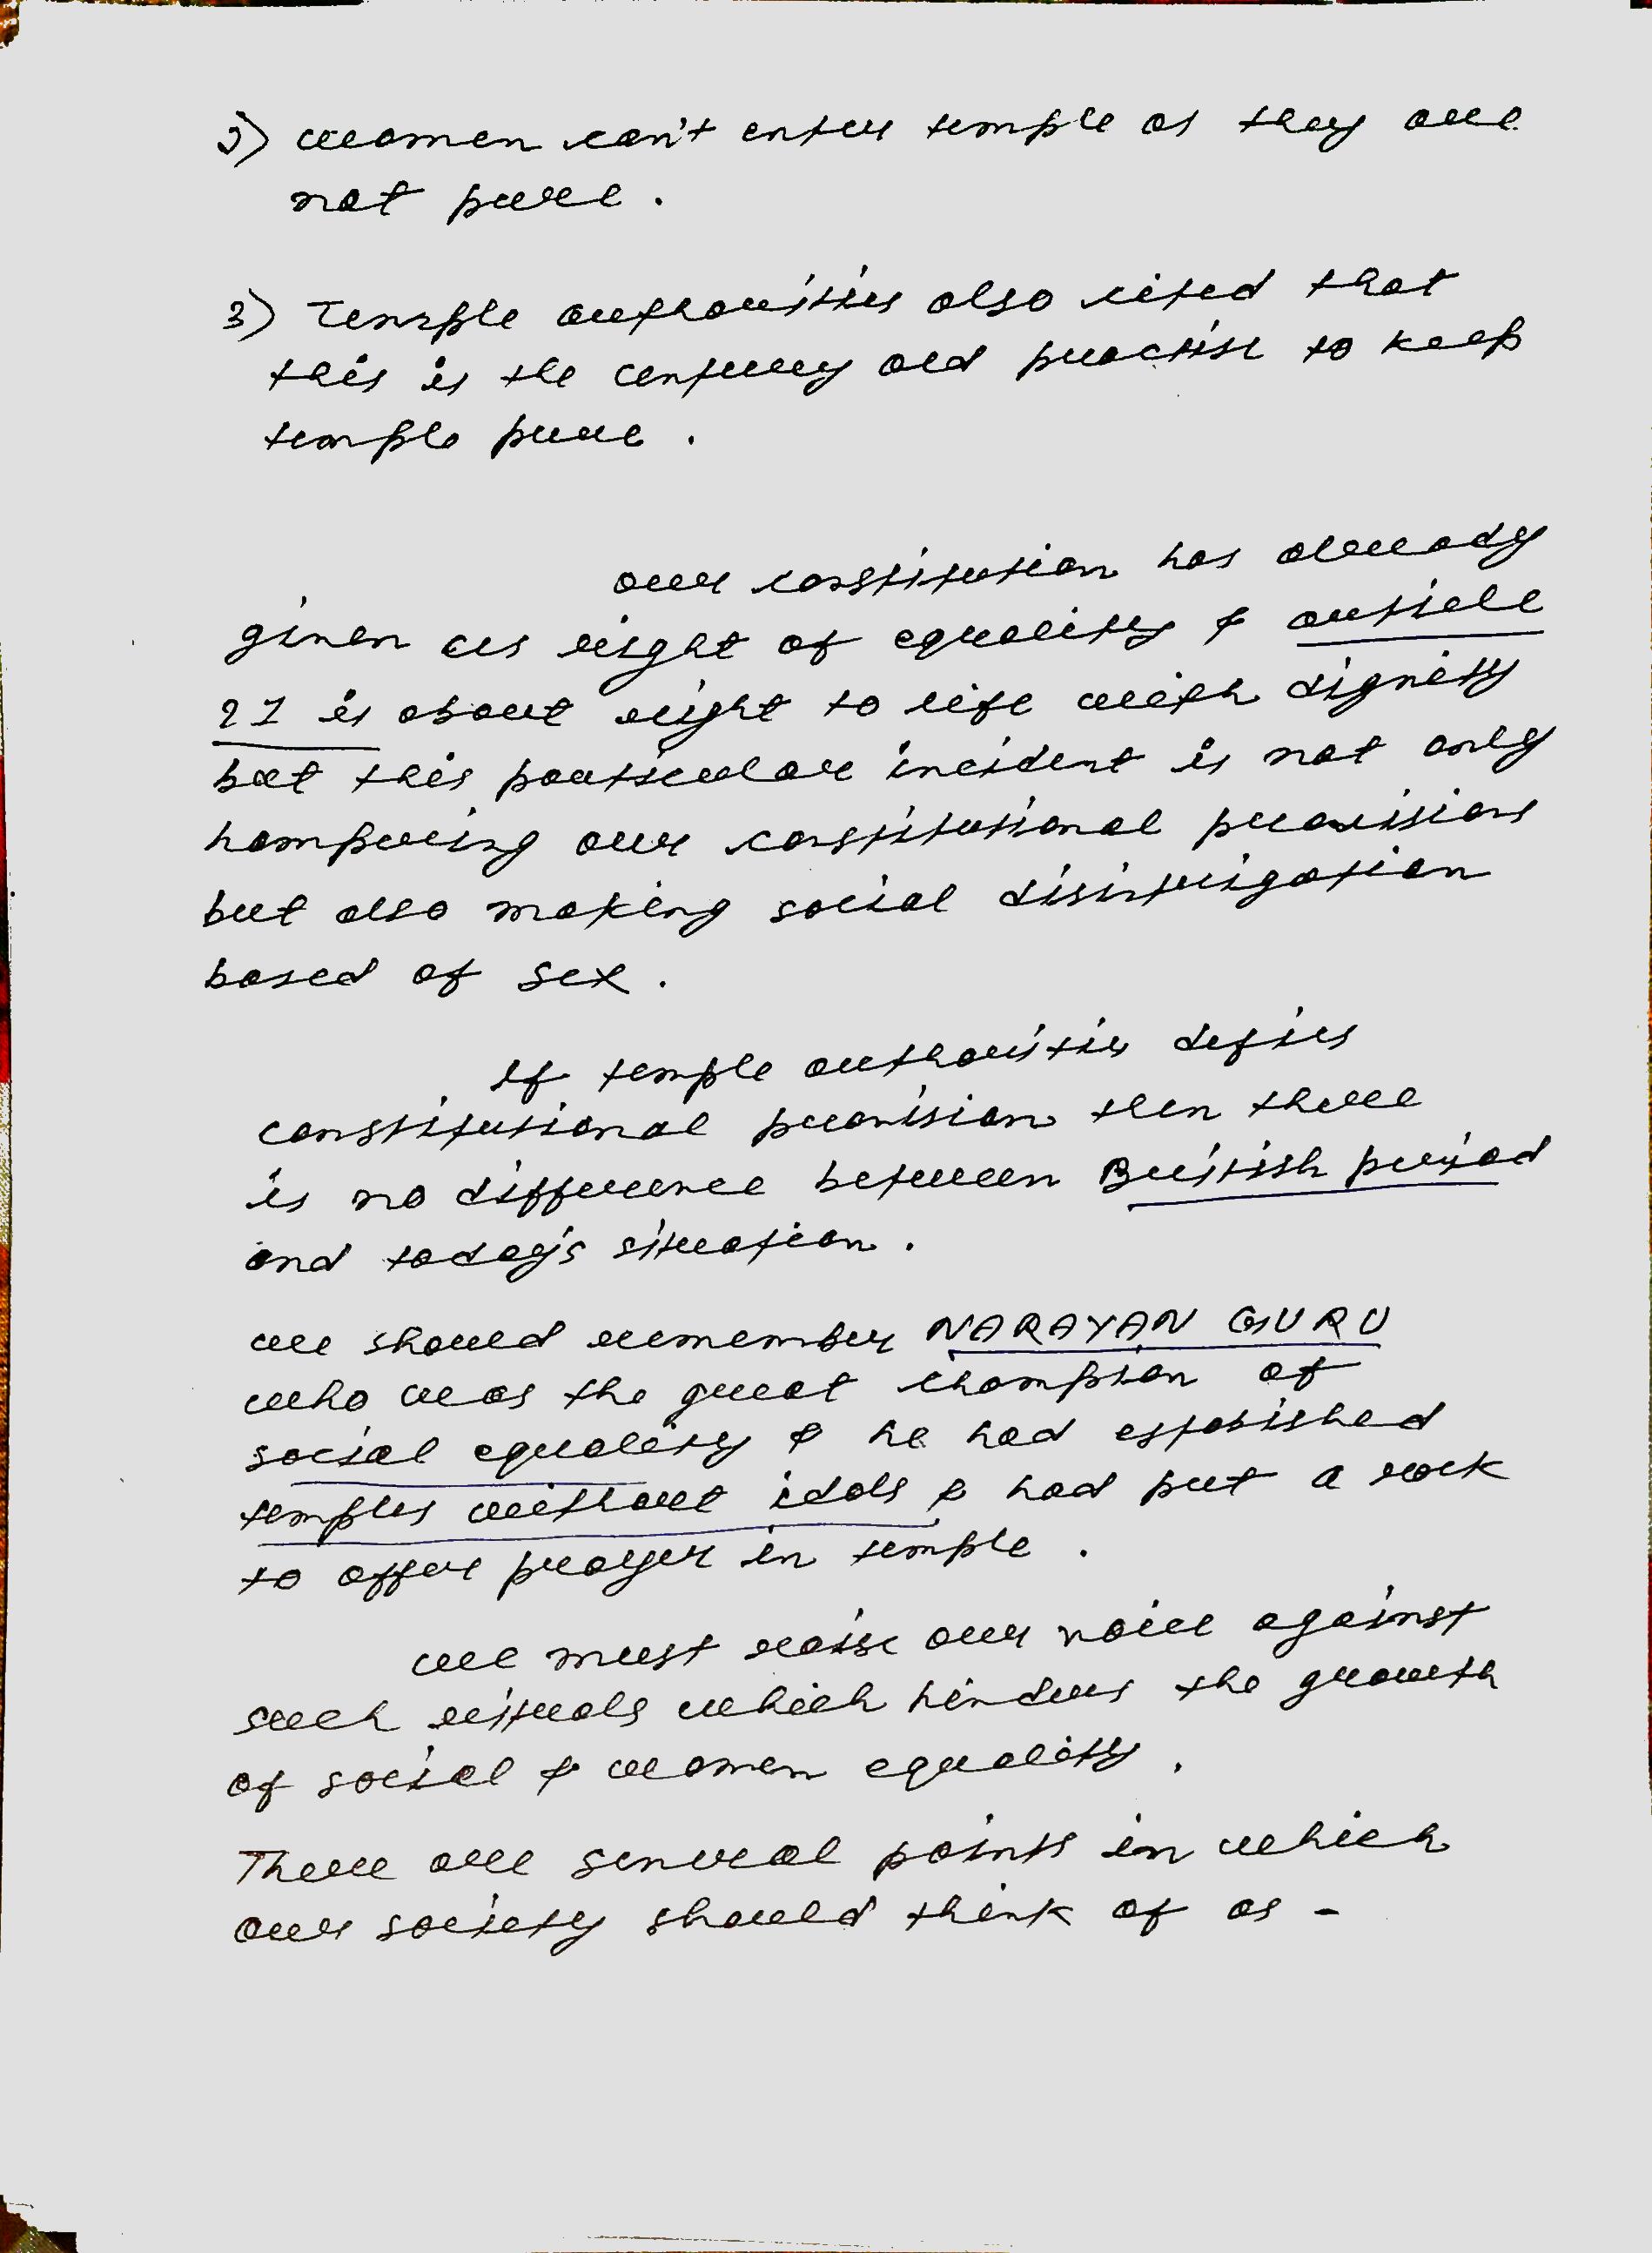 2) women can't enter temple as they are
not pure.
3) Temple authorities also cited that
this is the century old practise to keep
temple pure.
our constitution has already
given us right of equality & article
21 is about right to life with dignity
but this particular incident is not only
hampering our constitutional provisions
but also making social disintrigation
based of sex.
If temple authoritie defies
constitutional provision then there
is no difference between British period
and today's situation.
we should remember NARAYAN GURU
who was the great champion of
social equality & he had estabished
temples without idols & had put a rock
to offer prayer in temple.
we must raise our voice against
such rituals which hinders the growth
of social & women equality.
There are several points in which
our society should think of as -